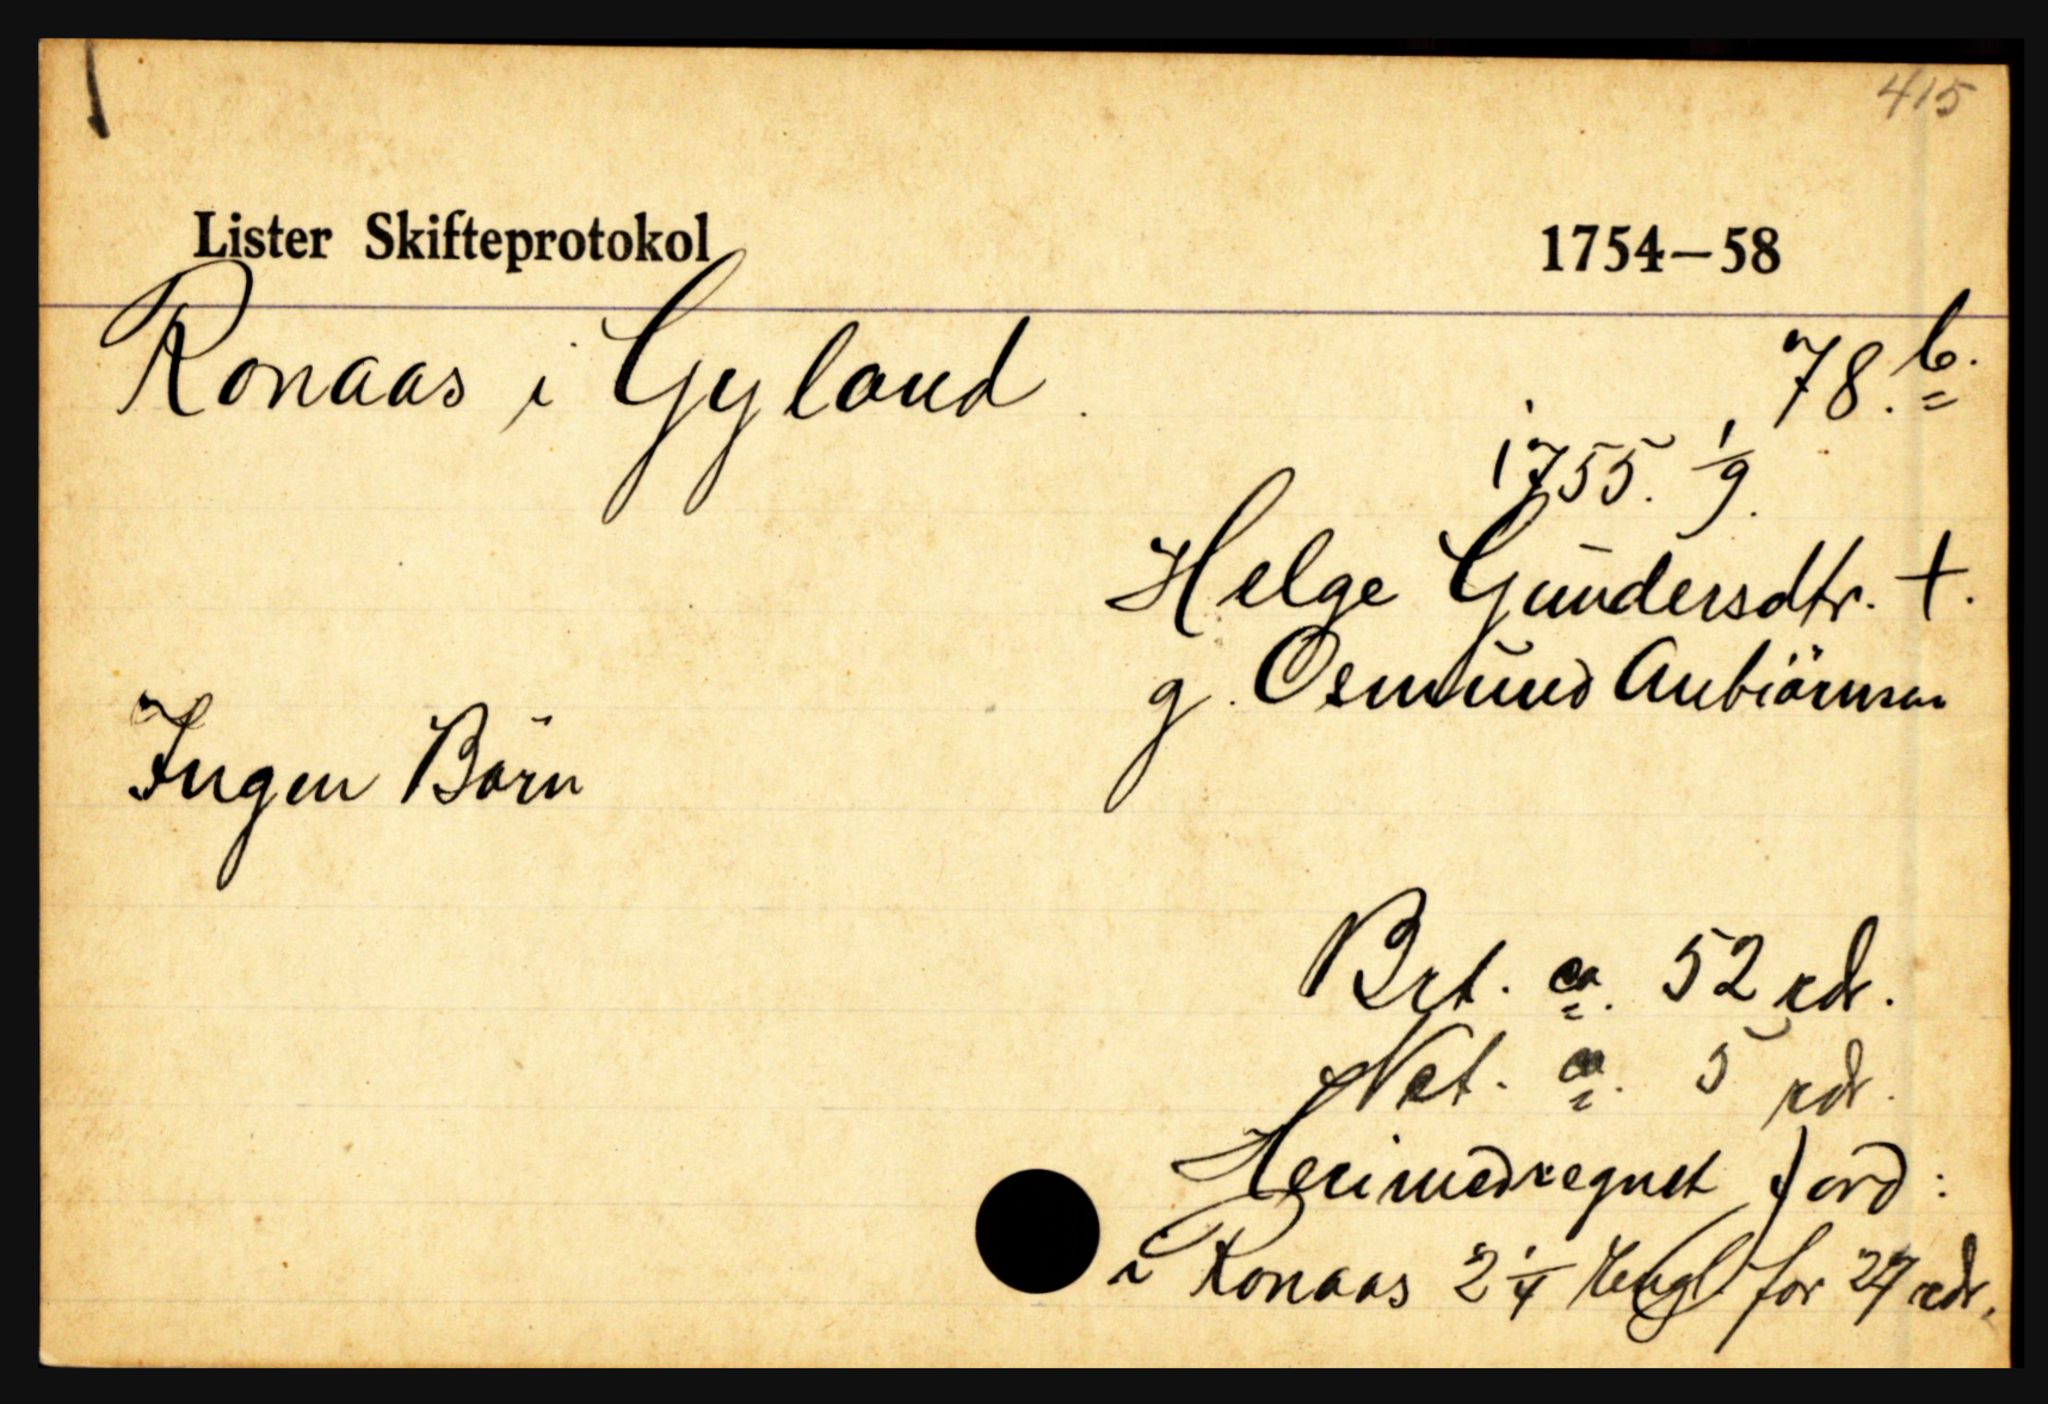 415
Lister Skifteprotokol 1754—58
Ronaas i Gyland. 78.b.
1755. 1/9.
Helge Gundersdtr. +.
g. Osmund Anbiörnsen
Ingen Börn
Brt. ca. 52 rdr.
Net. ca. 5 rdr.
Heri medregnet jord:
i Ronaas 2 1/4 Engl. for 27 rdr.